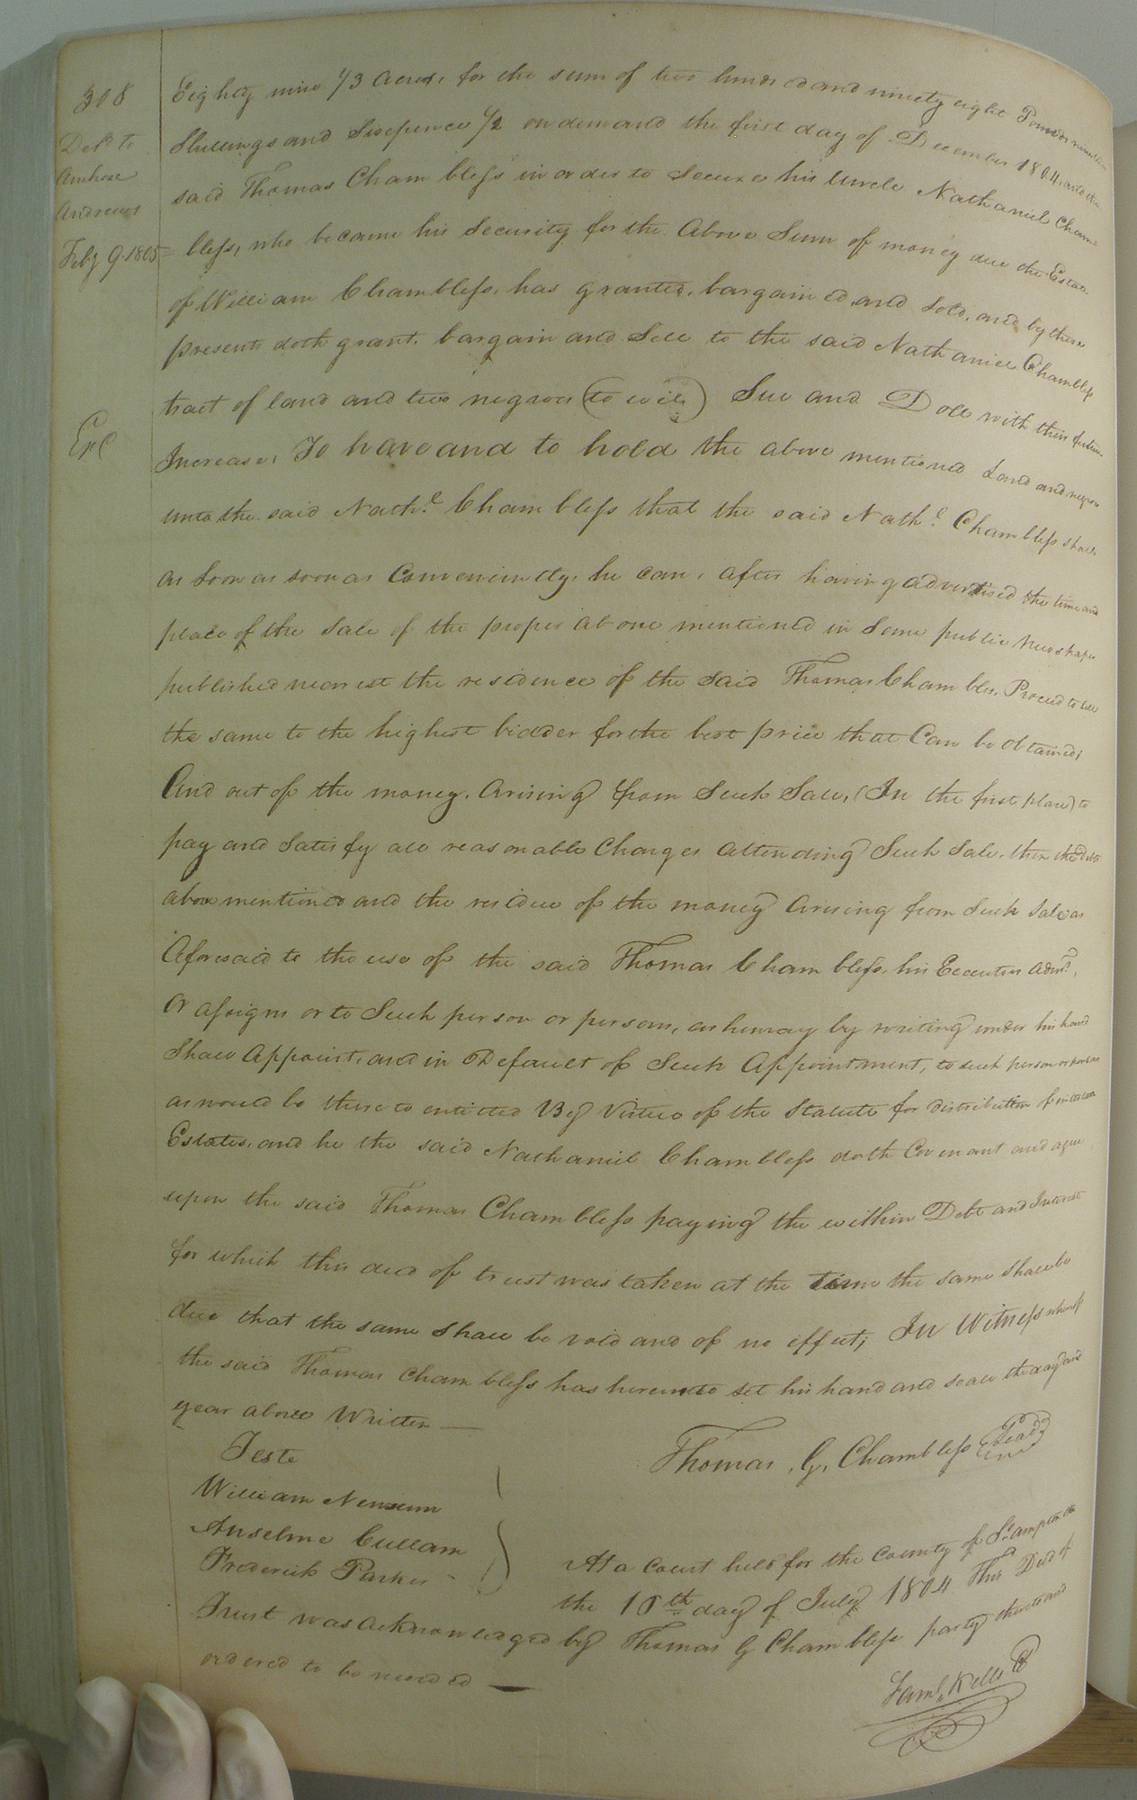 308
Deld to
Ambrose
Andrews
Feby 9 1805
Exd
Eighty nine 1/3 Acres, for the sum of two hundred and ninety eight Pounds nineteen
Shillings and Sixpence 1/2 on demand the first day of December 1804, and the
said Thomas Chambless in order to Secure his Uncle Nathaniel Cham=
=bless, who became his Security for the Above Sum of money due the Estate
of William Chambless, has granted, bargained and Sold, and by these
presents doth grant, bargain and Sell to the said Nathaniel Chambless
tract of land and two negroes (to wit) Sue and Doll with their future
Increase, To have and to hold the above mentioned Land and negroes
unto the said Nathl. Chambless that the said Nathl. Chambless shall
as soon as soon as Conveniently he can, after having advertised the time and
place of the Sale of the proper above mentioned in some public newspaper
published nearest the residence of the said Thomas Chambless, Proceed to sell
the same to the highest bidder for the best price that Can be obtained;
And out of the money, arising from Such Sale, (In the first place) to
pay and Satisfy all reasonable Charges attending Such Sale, then the debt
above mentioned and the residue of the money arising from Such Sale as
Aforesaid to the use of the said Thomas Chambless, his Executors Admrs.
Or assigns or to Such person or persons, as he may by writing under his hand
Shall Appoint, and in Default of Such Appointment, to such person or persons
as would be there to entitled By Virtue of the Statute for distribution of intestate
Estates, and he the said Nathaniel Chambless doth Covenant and agree
upon the said Thomas Chambless paying the within Debt and Interest
for which this deed of trust was taken at the time the same shall be
due that the same Shall be void and of no effect; In Witness whereof
the said Thomas Chambless has hereunto set his hand and seal the day and
year above Written —
Thomas, G, Chambless Seal
Teste
William Newsum
Anselme Cullam
Frederick Parker
At a Court held for the County of Southampton the
the 16th day of July 1804 This Deed of
Trust was acknowledged by Thomas G Chambless party thereto and
ordered to be recorded —
Saml. Kello C